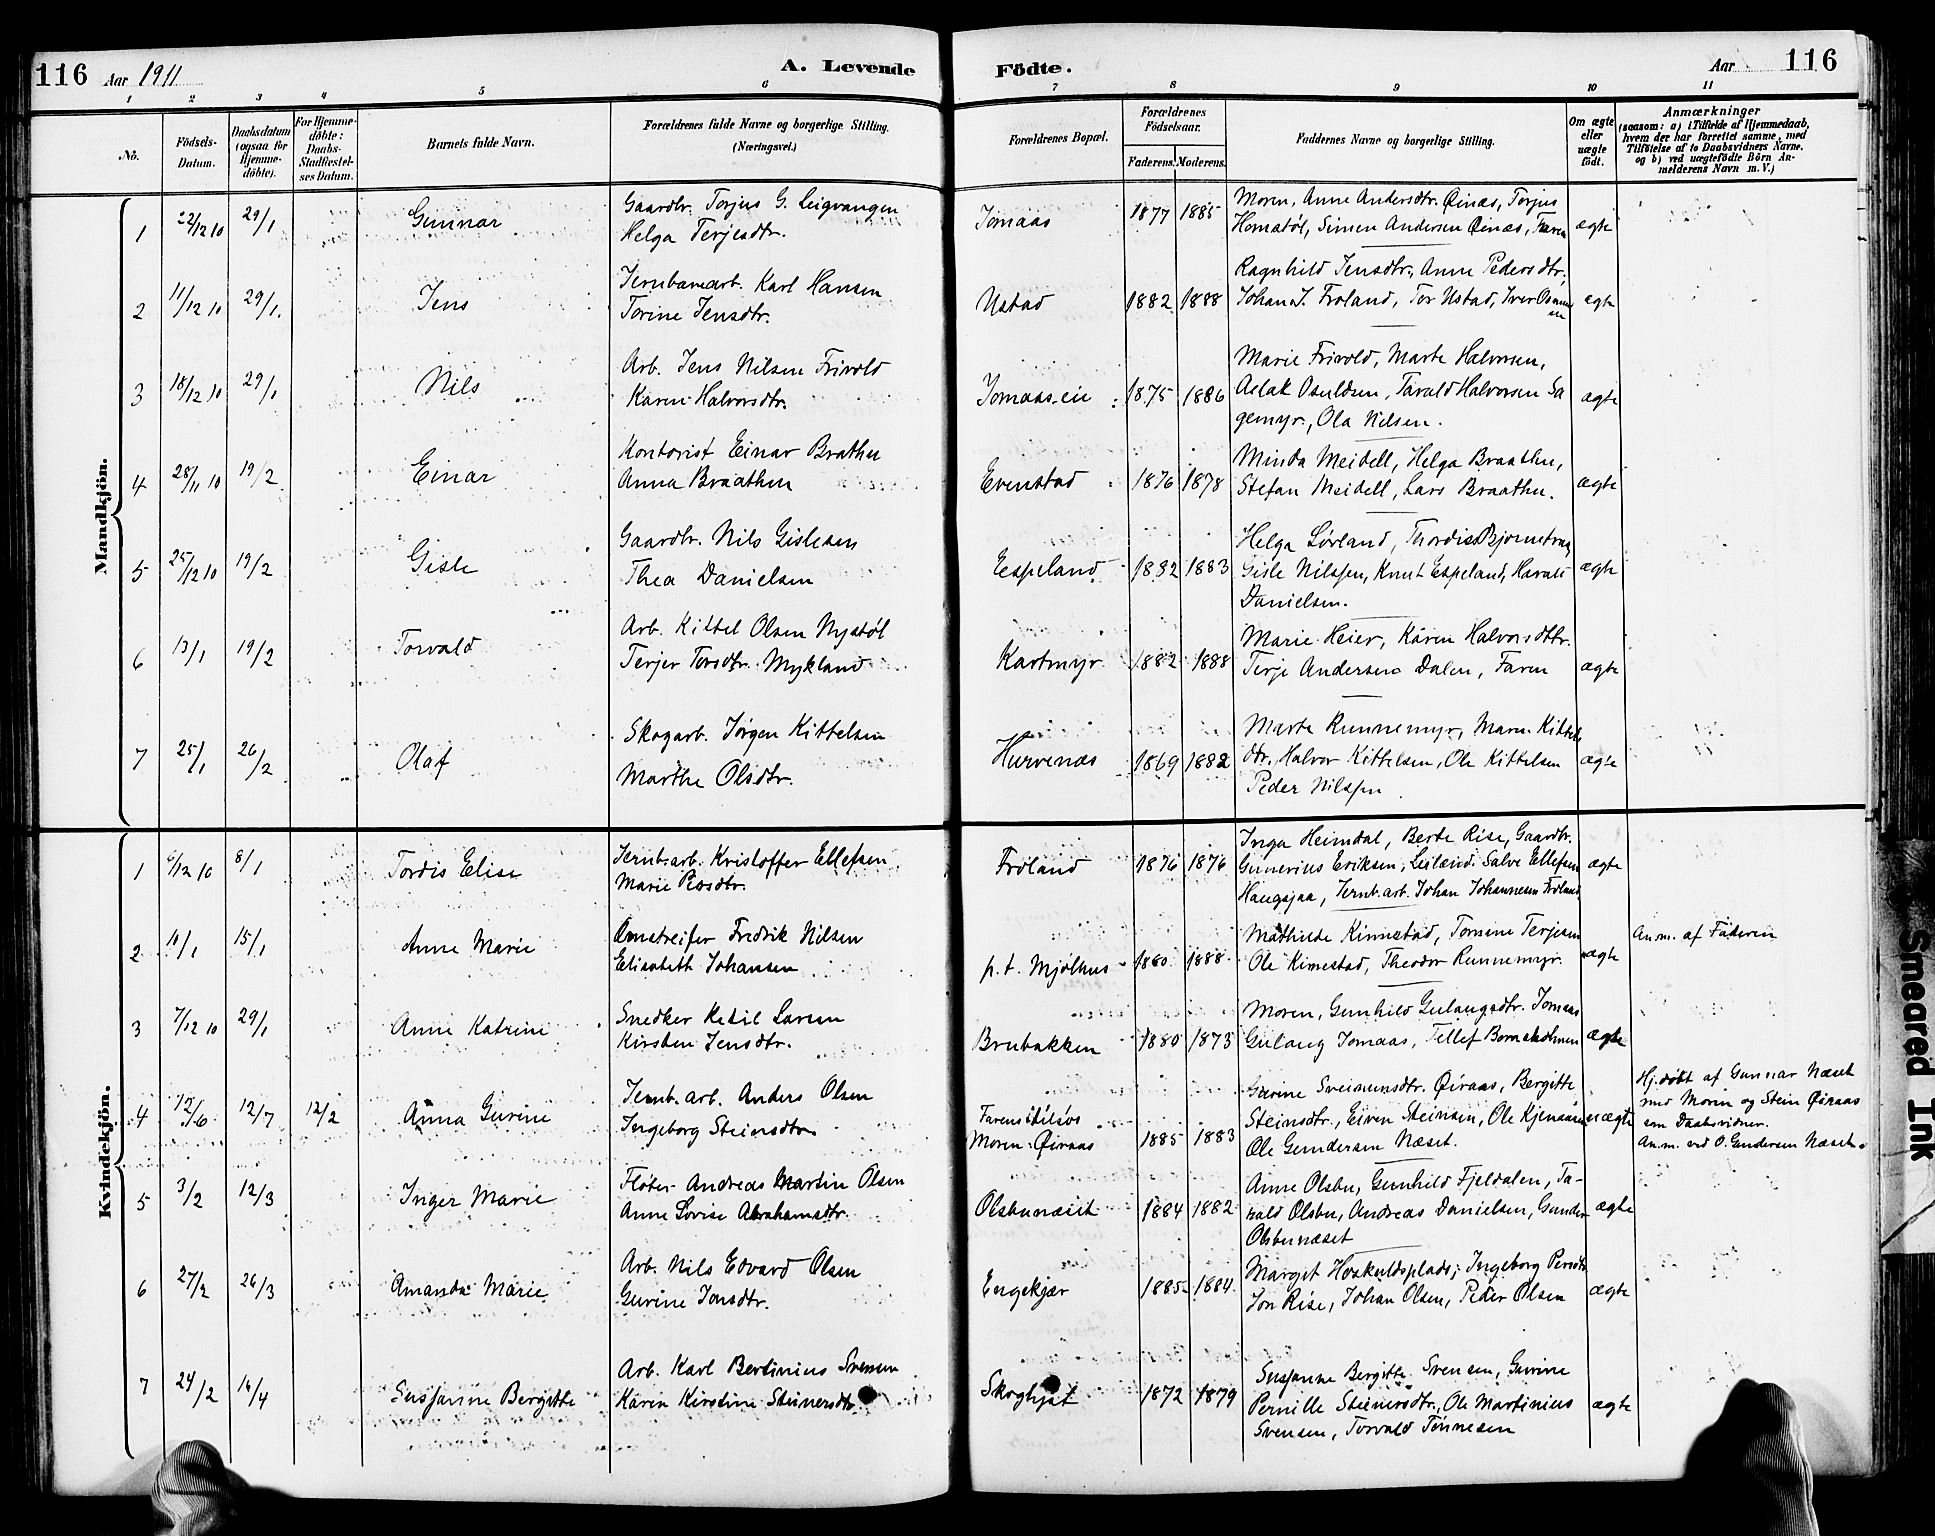 116 Aar 1911 A. Levende Födte. Aar 116
1 2 3 4 5 6 7 8 9 10 11
No.
Födsels-
Datum.
Daabsdatum
(ogsaa for
Hjemme-
döbte).
For Hjemme-
döbte:
Daabs-
Stadfæstel-
ses Datum.
Barnets fulde Navn.
Forældrenes fulde Navne og borgerlige Stilling.
(Næringsvei.)
Forældrenes Bopæl.
Forældrenes
Födselsaar.
Faderens. Moderens.
Faddernes Navne og borgerlige Stilling.
Om ægte
eller
uægte
födt.
Anmærkninger
(saasom: a) i Tilfælde af Hjemmedaab,
hvem der har forrettet samme, med
Tilföielse af to Daabsvidners Navne.
og b) ved uægtefödte Börn An-
melderens Navn m. V.)
Mandkjön.
1 22/12 10 29/1 Gunnar
Gaardbr. Torjus G. Leigvangen
Helga Terjesdtr.
Jomaas 1877 1885
Moren, Anne Andersdtr. Øinæs, Torjus
Homstøl, Simen Andersen Øinæs, Faren
ægte
2 11/12 10 29/1. Jens
Jernbanearb. Karl Hansen
Torine Jensdtr.
Ustad 1882 1888
Ragnhild Jensdtr., Anne Pedersdtr.
Johan J. Froland, Tor Ustad, Iver
ægte
3 18/12 10 29/1 Nils
Arb. Jens Nilsen Frivold
Karen Halvorsdtr.
Jomaas-eie 1875 1886
Marie Frivold, Marte Halvorsen,
Aslak Osuldsen, Tarald Halvorsen Sa
gemyr, Ola Nilsen.
ægte
4 28/11 10 19/2 Einar
Kontorist Einar Brathen
Anna Braathen
Evenstad 1876 1878
Minda Meidell, Helga Braathen,
Stefan Meidell, Lars Braathen.
ægte
5 25/12 10 19/2 Gisle
Gaardbr. Nils Gislesen
Thea Danielsen
Espeland 1882 1883
Helga Lørland, Thordis
Gisle Nilssen, Knut Espeland, Harald
Danielsen.
ægte
6 13/1 19/2 Torvald
Arb. Kittel Olsen Nystøl
Terjer Torsdtr. Mykland
Kartmyr 1882 1888
Marie Heier, Karen Halvorsdtr.
Terje Andersen Dalen, Faren
ægte
7 25/1 26/2 Olaf
Skogarb. Jørgen Kittelsen
Marthe Olsdtr.
Hurvenæs 1869 1882
Marte Runnemyr, Maren Kittels
dtr., Halvor Kittelsen, Ole Kittelsen
Peder Nilssen
ægte
Kvindekjön.
1 6/12 10 8/1 Tordis Elise
Jernb.arb. Kristoffer Ellefsen
Marie
Froland 1876 1876
Inga Heimdal, Berte Rise, Gaardbr.
Gunerius Eriksen, Leilænd. Salve Ellefsen
Haugsjaa, Jernb.arb. Johan Johannesen Froland
ægte
2 10/1 15/1 Anne Marie
Omstreifer Fredrik Nilsen
Elisabeth Johansen
p.t. Mjølhus 1880 1888
Mathilde Kimestad, Tomine Terjesen
Ole Kimestad, Theodor Runnemyr.
uægte
Anm. af Faderen
3 7/12 10 29/1 Anne Katrine
Snedker Ketil Larsen
Kirsten Jensdtr.
Brubakken 1880 1873
Moren, Gunhild Gulaugsdtr. Jomaas
Gulaug Jomaas, Tellef Bornsholmen
ægte
4 12/6 12/7 12/2 Anna Gurine
Jernb.arb. Anders Olsen
Ingeborg Steinsdtr.
Farens:
Moren: Øiraas 1885 1883
Gurine Sveinunsdtr. Øiraas, Bergitte
Steinsdtr., Eiven Steinsen, Ole Kjenaas
Ole Gundersen Næset.
uægte
Hj.døbt af Gunnar Næset
med Moren og Stein Øiraas
som Daabsvidner.
Anm. ved O. Gundersen Næset.
5 3/2 12/3 Inger Marie
Fløter Andreas Martin Olsen
Anne Lovise Abrahamsdtr.
Olsbunæset 1884 1882
Anne Olsbu, Gunhild Fjeldalen, Ta-
rald Olsbu, Andreas Danielsen, Gunder
Olsbunæset
ægte
6 27/2 26/3 Amanda Marie
Arb. Nils Edvard Olsen
Gurine Jonsdtr.
Engekjær 1885 1884
Margit Høskuldsplads, Ingeborg Persdtr
Jon Rise, Johan Olsen, Peder Olsen
ægte
7 24/2 16/4 Susanne Bergitte
Arb. Karl Bertinius Svensen
Karen Kirstine Steinersdtr
Skoghjat 1872 1879
Susanne Bergitte Svensen, Gurine
Pernille Steinersdtr., Ole Martinius
Svensen, Torvald Tønnesen
ægte
Smeared Ink